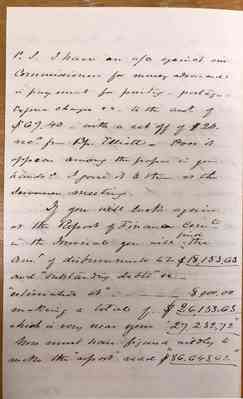 P.S. I have an a/c against our
Commissioner for money advanced
in payment for printing - postage -
express charges &c. to the amt. of
$67.40 - with a set off of $20.
rec'd from Elliott - Does it
appear among the papers in your
hands? I gave it to them at the
meeting.
If you will look again
at the Report of Finance Com'tee
in the Journal you will find the
Am't of disbursements to be $18,153.63
and "outstanding debts" &c
"estimated at" - 8000.00
making a total of $26,153.63
which is very near your "27,232.72"
You must have figured oddly to
make the "report" read $86,648.62.